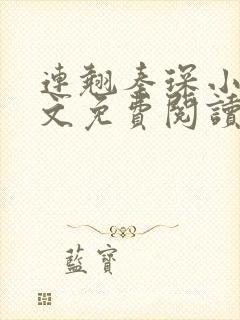 連翹秦琛小
文免費閱讀
藍寶